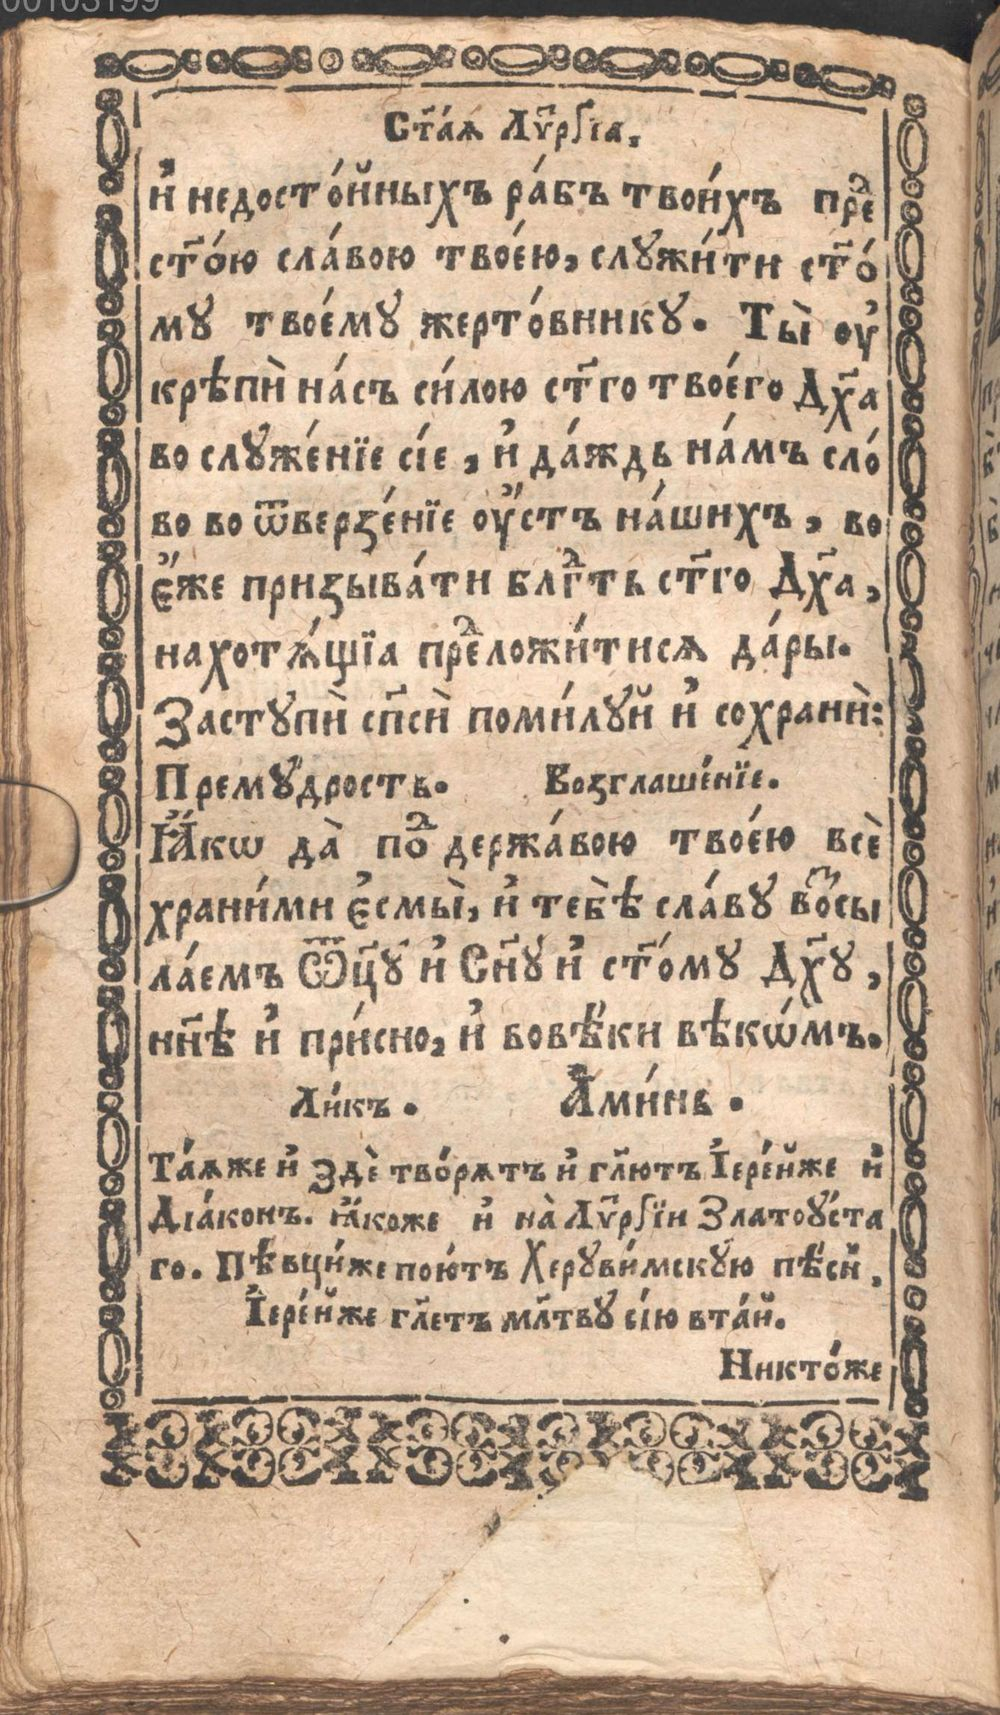 00103199
Ст҃а́ѧ Лѵ҃рґіа,
и҆ недосто́йныхъ ра́бъ твои́хъ прⷣе
ст҃о́ю сла́вою твое́ю, слꙋжи́ти ст҃о́
мꙋ твое́мꙋ жерто́вникꙋ. Ты̀ ѹ҆
крѣпѝ на́съ си́лою ст҃го твое́го Дх҃а
во слꙋже́нїе сі́е, и҆ да́ждь на́мъ сло́
во во ѿверзе́нїе ѹ҆́стъ на́шихъ, во
є҆́же призыва́ти блгⷣть ст҃го Дх҃а,
на хотѧ́щїа прⷣеложи́тисѧ да́ры.
Застꙋпѝ сп҃сѝ поми́лꙋй и҆ сохранѝ:
Премꙋ́дрость. Возглаше́нїе.
Ꙗ҆́кѡ да̀ поⷣ держа́вою твое́ю всѐ
храни́ми є҆смы̀, и҆ тебѣ̀ сла́вꙋ воⷥсы
ла́емъ Ѿц҃ꙋ и҆ Сн҃ꙋ и҆ ст҃о́мꙋ Дх҃ꙋ,
нн҃ѣ и҆ при́сно, и҆ вовѣ́ки вѣкѡ́мъ.
Ли́къ. А҆ми́нь.
Та́ѧже и҆ здѐ твóрѧтъ и҆ гл҃ютъ І҆ере́йже и҆
Діа́конъ. ꙗ҆́коже и҆ на̀ Лѵ҃рґїи Златоꙋ́ста
го. Пѣвци́же пою́тъ Херꙋви́мскꙋю пѣ́снй,
І҆ере́йже гл҃етъ мл҃твꙋ сі́ю вта́й.
Никто́же